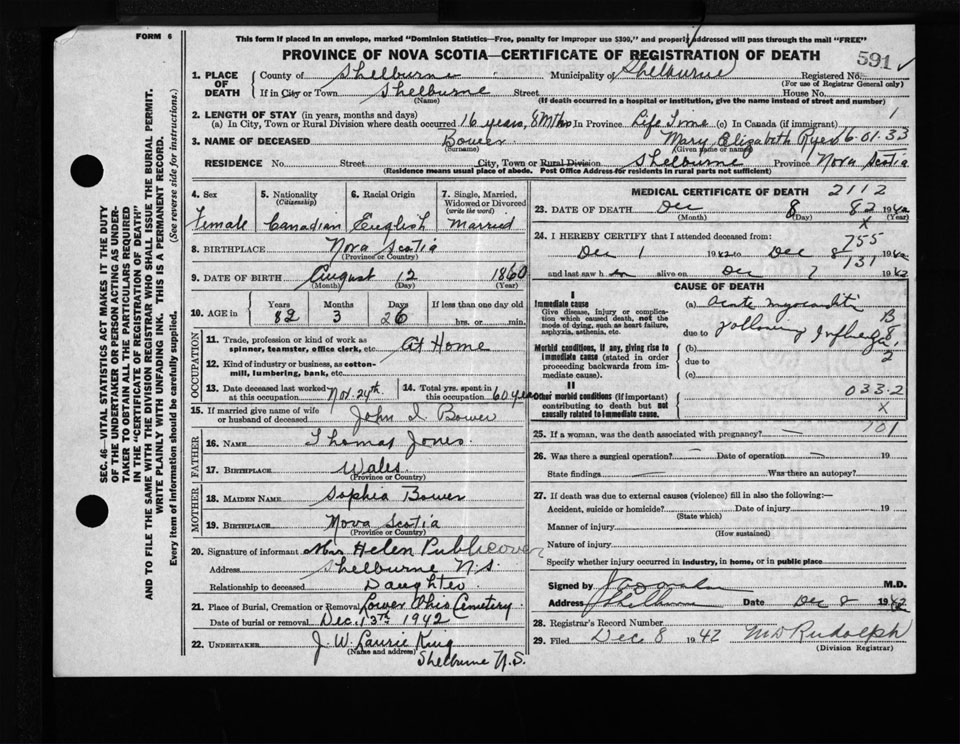 FORM 6
This form if placed in an envelope, marked "Dominion Statistics—Free, penalty for improper use $300," and properly addressed will pass through the mail "FREE"
PROVINCE OF NOVA SCOTIA—CERTIFICATE OF REGISTRATION OF DEATH
591
1. PLACE OF DEATH County of Shelburne Municipality of Shelburne Registered No. (For use of Registrar General only)
If in City or Town Shelburne (Name) Street House No.
(If death occurred in a hospital or institution, give the name instead of street and number)
2. LENGTH OF STAY (in years, months and days)
(a) In City, Town or Rural Division where death occurred 16 years, 8 Mths In Province Life Time (c) In Canada (if immigrant) 1
3. NAME OF DECEASED Bower (Surname) Mary Elizabeth (Given name or names) 6-01.33
RESIDENCE No. Street City, Town or Rural Division Shelburne Province Nova Scotia
(Residence means usual place of abode. Post Office Address for residents in rural parts not sufficient)
4. Sex Female
5. Nationality (Citizenship) Canadian
6. Racial Origin English
7. Single, Married, Widowed or Divorced (write the word) Married
8. BIRTHPLACE Nova Scotia
(Province or Country)
9. DATE OF BIRTH August 12 1860
(Month) (Day) (Year)
10. AGE in Years 82 Months 3 Days 26 If less than one day hrs. or min.
OCCUPATION
11. Trade, profession or kind of work as spinner, teamster, office clerk, etc. At Home
12. Kind of industry or business, as cotton-mill, lumbering, bank, etc.
13. Date deceased last worked at this occupation Nov. 24th.
14. Total yrs. spent in this occupation 60 years
15. If married give name of wife or husband of deceased John I Bower
FATHER
16. NAME Thomas Jones
17. BIRTHPLACE Wales
(Province or Country)
MOTHER
18. MAIDEN NAME Sophia Bower
19. BIRTHPLACE Nova Scotia
(Province or Country)
20. Signature of informant Mrs Helen Publicover
Address Shelburne N.S.
Relationship to deceased Daughter
21. Place of Burial, Cremation or Removal Lower Ohio Cemetery.
Date of burial or removal Dec. 13th 1942
22. UNDERTAKER J. W. Laurie King
(Name and address)
Shelburne N.S.
MEDICAL CERTIFICATE OF DEATH 2112
23. DATE OF DEATH Dec 8 82 194
(Month) (Day) (Year)
X
24. I HEREBY CERTIFY that I attended deceased from: 755
Dec 1 1942 to Dec 8 1942
131
and last saw h alive on Dec 7 1942
CAUSE OF DEATH
I
Immediate cause
Give disease, injury or complication which caused death, not the mode of dying, such as heart failure, asphyxia, asthenia, etc.
(a) acute myocarditis
B
due to following Influenza
8
Morbid conditions, if any, giving rise to immediate cause (stated in order proceeding backwards from immediate cause).
(b)
due to 2
(c)
II
Other morbid conditions (if important) contributing to death but not causally related to immediate cause.
033-2
X
701
25. If a woman, was the death associated with pregnancy? —
26. Was there a surgical operation? — Date of operation — 19
State findings — Was there an autopsy?
27. If death was due to external causes (violence) fill in also the following:—
Accident, suicide or homicide? Date of injury 19
(State which)
Manner of injury
(How sustained)
Nature of injury
Specify whether injury occurred in industry, in home, or in public place
Signed by M.D.
Address Shelburne Date Dec 8 1942
28. Registrar's Record Number
29. Filed Dec 8 1942 M D Rudolph
(Division Registrar)
SEC. 46—VITAL STATISTICS ACT MAKES IT THE DUTY
OF THE UNDERTAKER OR PERSON ACTING AS UNDER-
TAKER TO OBTAIN ALL THE PARTICULARS REQUIRED
IN THE "CERTIFICATE OF REGISTRATION OF DEATH"
AND TO FILE THE SAME WITH THE DIVISION REGISTRAR WHO SHALL ISSUE THE BURIAL PERMIT.
WRITE PLAINLY WITH UNFADING INK. THIS IS A PERMANENT RECORD.
Every item of information should be carefully supplied. (See reverse side for instructions.)